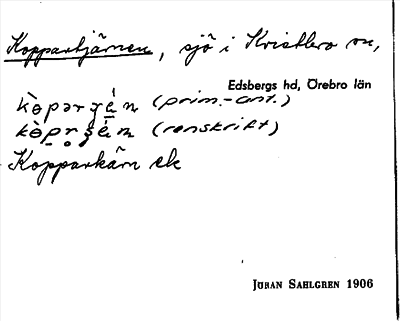 Koppartjärnen, sjö i Kvistbro sn,
Edsbergs hd, Örebro län
(prim.-ant.)
(renskrift)
Kopparkärn ek
JÖRAN SAHLGREN 1906